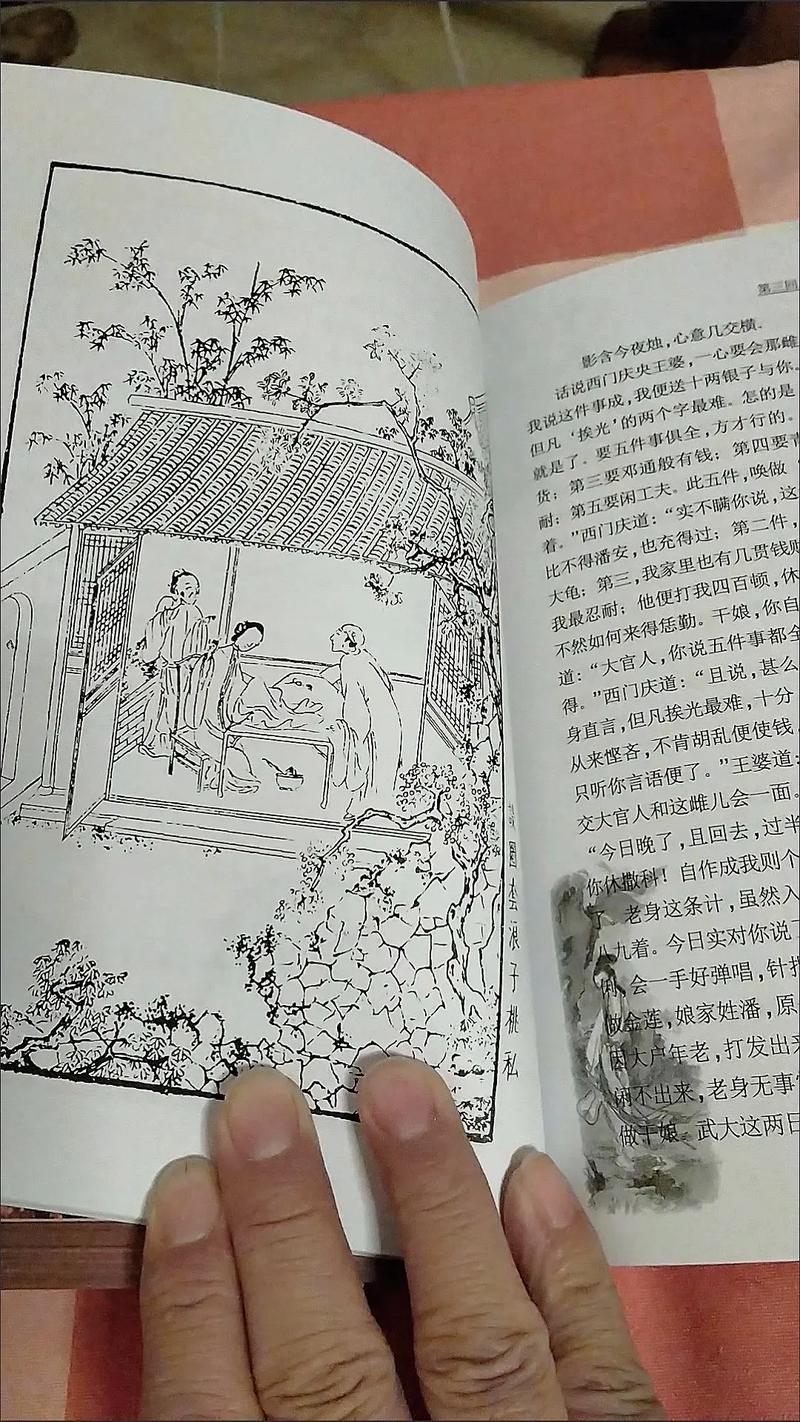 圓
浪子挑私
第三回
影含今夜烛，心意几交横.
话说西门庆央王婆，一心要会那雌
我说这件事成，我便送十两银子与你。
但凡‘挨光’的两个字最难。怎的是
就是了。要五件事俱全，方才行的。
货；第三要邓通般有钱；第四要青
耐；第五要闲工夫。此五件，唤做
着。”西门庆道：“实不瞒你说，这
比不得潘安，也充得过；第二件，
大龟；第三，我家里也有几贯钱财
我最忍耐；他便打我四百顿，休
不然如何来得恁勤。干娘，你自
道：“大官人，你说五件事都全
得。”西门庆道：“且说，甚么
身直言，但凡挨光最难，十分
从来悭吝，不肯胡乱便使钱
只听你言语便了。”王婆道：
交大官人和这雌儿会一面。
“今日晚了，且回去，过半
你休撒科！自作成我则个
了 老身这条计，虽然入
八九着。今日实对你说了
会一手好弹唱，针指
做金莲，娘家姓潘，原
因大户年老，打发出来
闲不出来，老身无事
做干娘。武大这两日